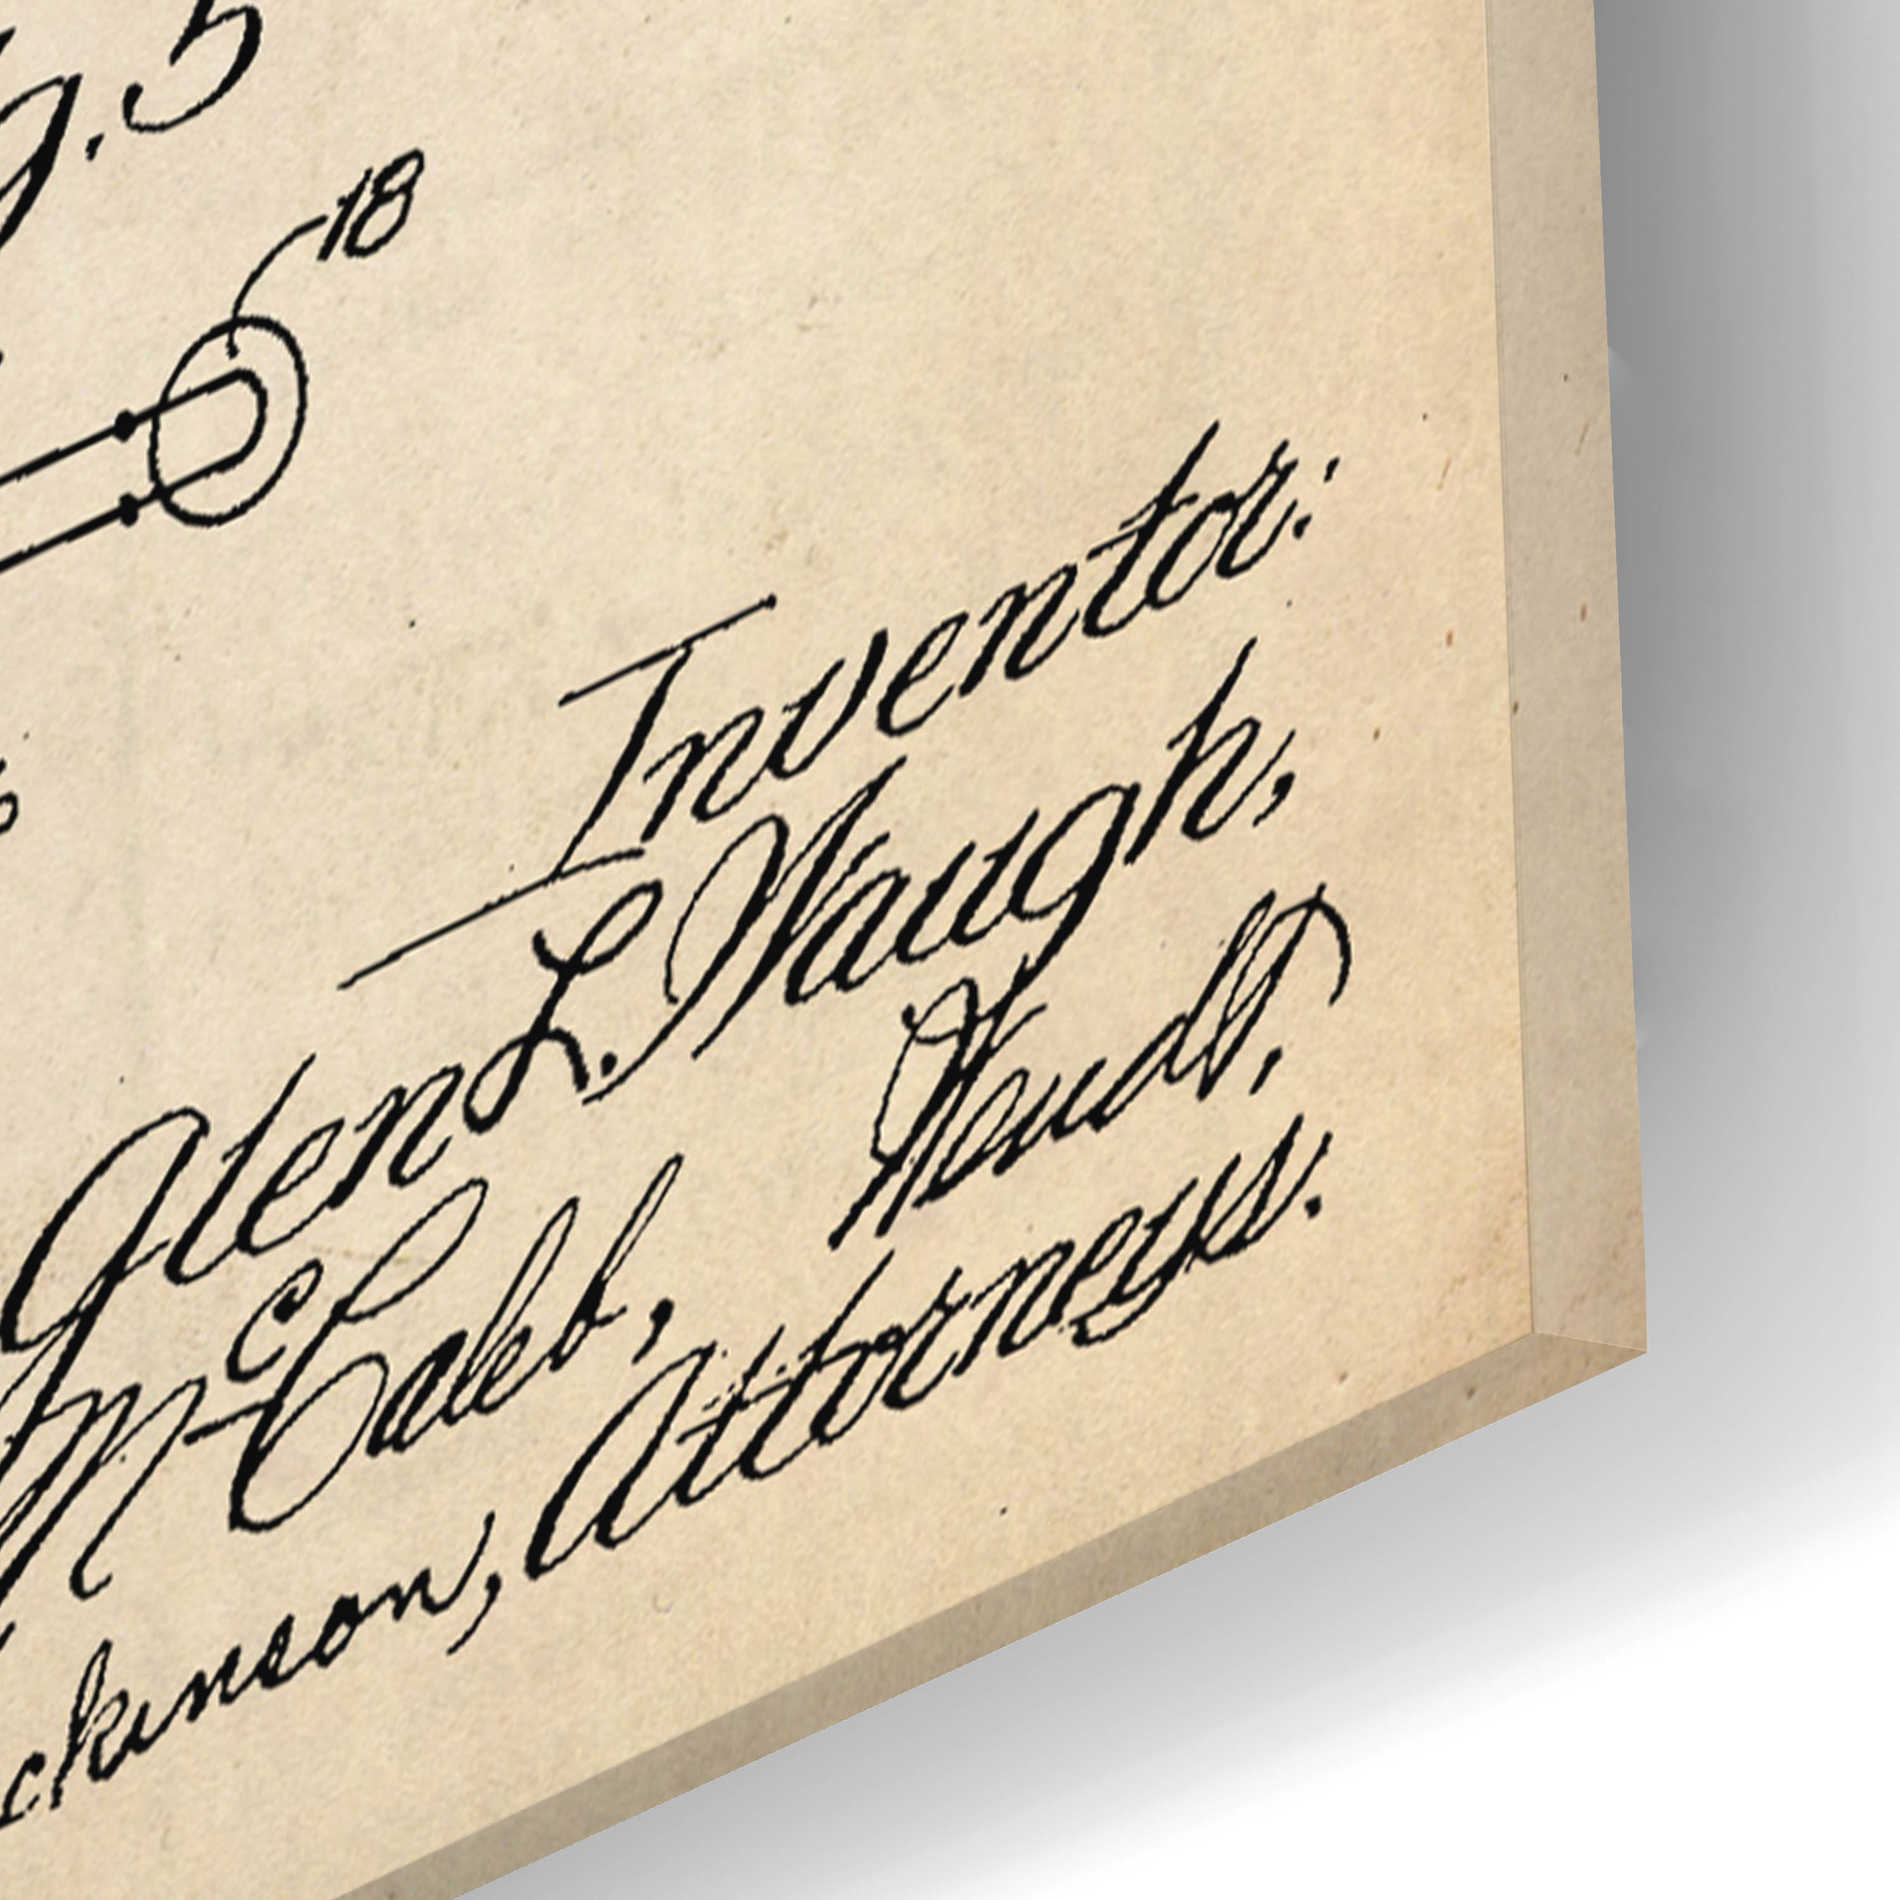 g. 5
18
Inventor:
Glen L. Waugh,
McCaleb, Wendt,
ckinson, Attorneys.